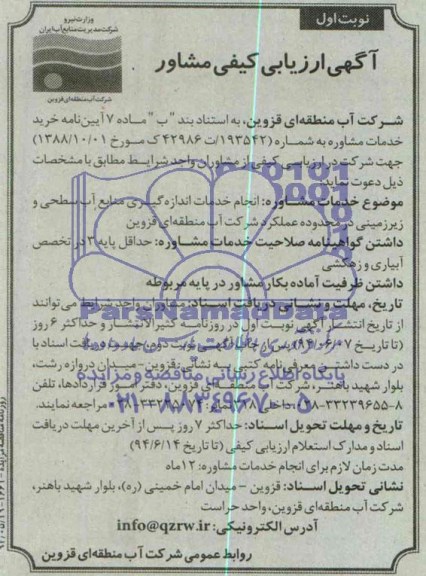 نوبت اول
وزارت نیرو
شرکت مدیریت منابع آب ایران
شرکت آب منطقه‌ای قزوین
آگهی ارزیابی کیفی مشاور
شرکت آب منطقه‌ای قزوین، به استناد بند "ب" ماده ۷ آیین‌نامه خرید
خدمات مشاوره به شماره (۱۹۳۵۴۲/ت ۴۲۹۸۶ ک مورخ ۱۳۸۸/۱۰/۰۱)
جهت شرکت در ارزیابی کیفی از مشاوران واجد شرایط مطابق با مشخصات
ذیل دعوت نماید.
موضوع خدمات مشاوره: انجام خدمات اندازه‌گیری منابع آب سطحی و
زیرزمینی در محدوده عملکرد شرکت آب منطقه‌ای قزوین
داشتن گواهینامه صلاحیت خدمات مشاوره: حداقل پایه ۳ در تخصص
آبیاری و زهکشی
داشتن ظرفیت آماده بکار مشاور در پایه مربوطه
تاریخ، مهلت و نشانی دریافت اسناد: مشاوران واجد شرایط می‌توانند
از تاریخ انتشار آگهی نوبت اول در روزنامه کثیرالانتشار و حداکثر ۶ روز
(تا تاریخ ۹۴/۰۶/۰۷) پس از چاپ آگهی نوبت دوم، جهت دریافت اسناد با
در دست داشتن معرفی‌نامه کتبی به نشانی: قزوین - میدان دروازه رشت،
بلوار شهید باهنر، شرکت آب منطقه‌ای قزوین، دفتر امور قراردادها، تلفن
۸-۳۳۲۳۹۶۵۵-۰۲۸ داخلی مراجعه نمایند.
تاریخ و مهلت تحویل اسناد: حداکثر ۷ روز پس از آخرین مهلت دریافت
اسناد و مدارک استعلام ارزیابی کیفی (تا تاریخ ۹۴/۶/۱۴)
مدت زمان لازم برای انجام خدمات مشاوره: ۱۲ماه
نشانی تحویل اسناد: قزوین - میدان امام خمینی (ره)، بلوار شهید باهنر،
شرکت آب منطقه‌ای قزوین، واحد حراست
آدرس الکترونیکی: info@qzrw.ir
روابط عمومی شرکت آب منطقه‌ای قزوین
ParsNamadData
پایگاه اطلاع رسانی مناقصه و مزایده
۰۲۱-۸۸۳۴۹۶۷۰-۵